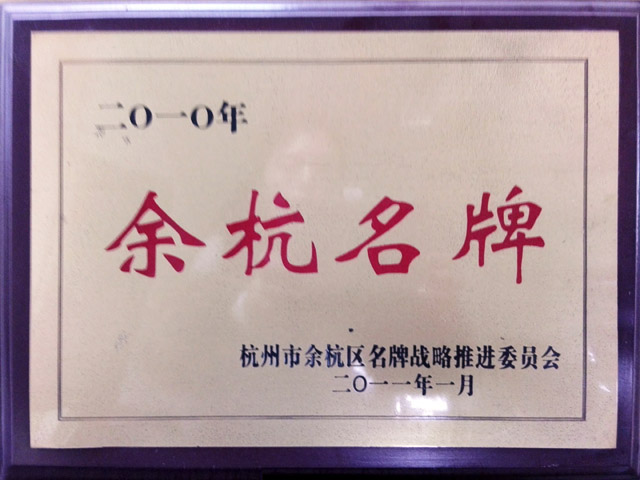 二〇一〇年
余杭名牌
杭州市余杭区名牌战略推进委员会
二〇一一年一月